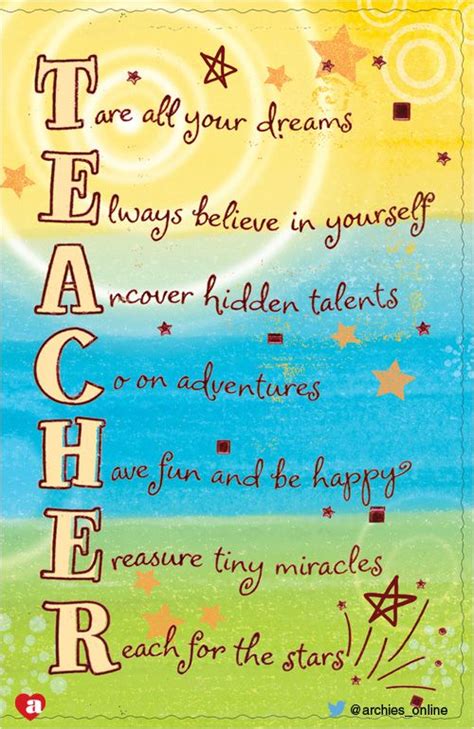 Tare all your dreams
Elways believe in yourself
Ancover hidden talents
Co on adventures
Have fun and be happy
Ereasure tiny miracles
Reach for the stars
a @archies_online